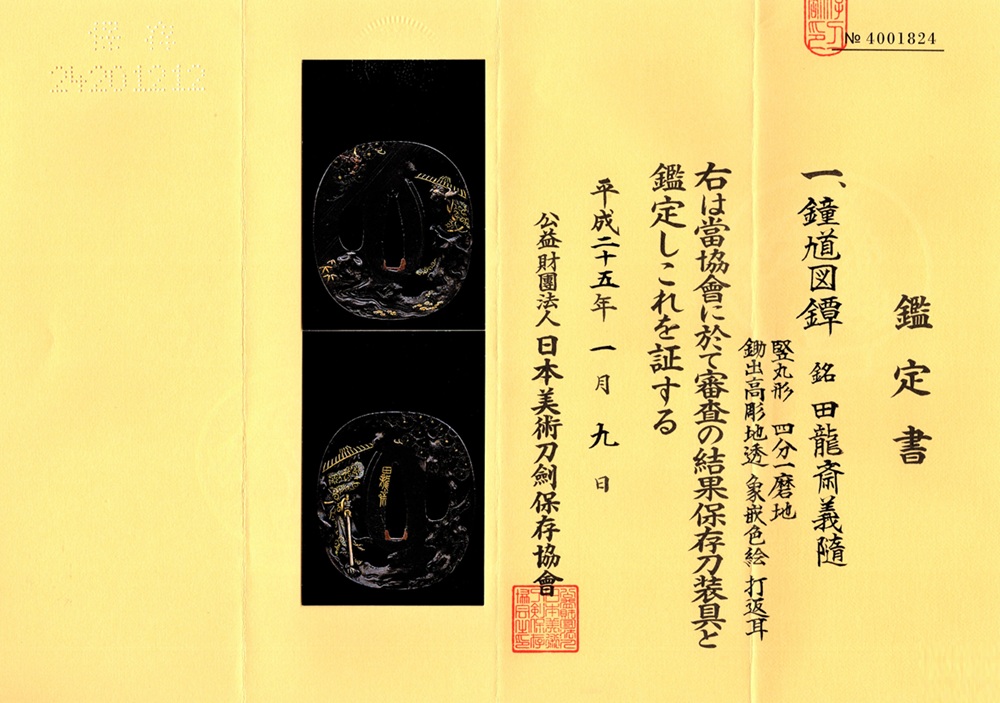 № 4001824
鑑定書
一、鐘馗図鐔 銘 田龍斎義随
竪丸形 四分一磨地
鋤出高彫地透 象嵌色絵 打返耳
右は當協會に於て審査の結果保存刀装具と
鑑定しこれを証する
平成二十五年一月九日
公益財團法人 日本美術刀劍保存協會
保存
24201212